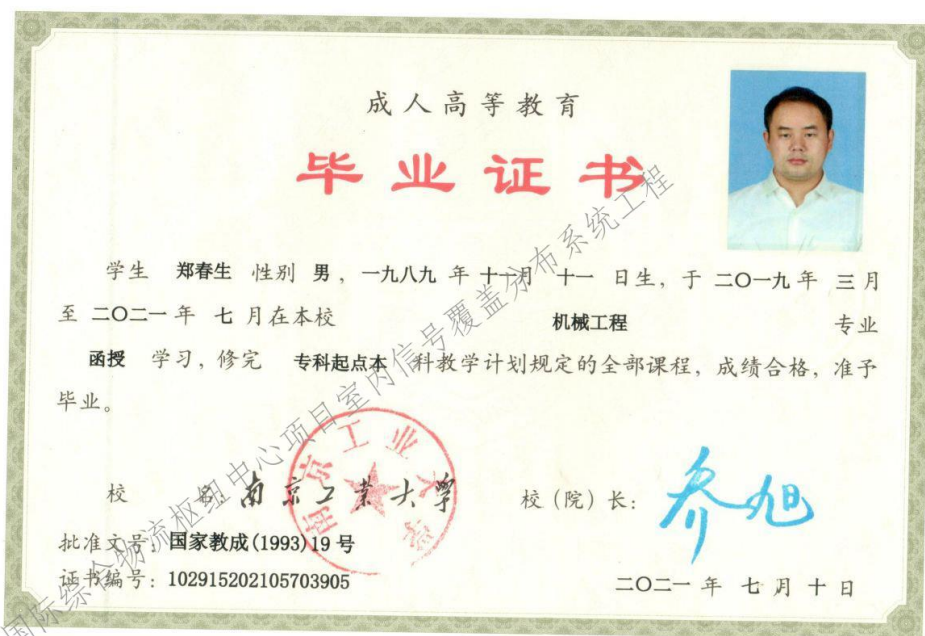 成人高等教育
毕业证书
学生 郑春生 性别 男，一九八九 年 十一月 十一 日生，于 二〇一九 年 三 月
至 二〇二一 年 七 月在本校 机械工程 专业
函授 学习，修完 专科起点本 科教学计划规定的全部课程，成绩合格，准予
毕业。
校 名：南京工业大学
校（院）长：乔旭
南京工业大学
批准文号：国家教成(1993)19号
证书编号：102915202105703905
二〇二一 年 七 月 十 日
国际综合物流枢纽中心项目室内信号覆盖分布系统工程